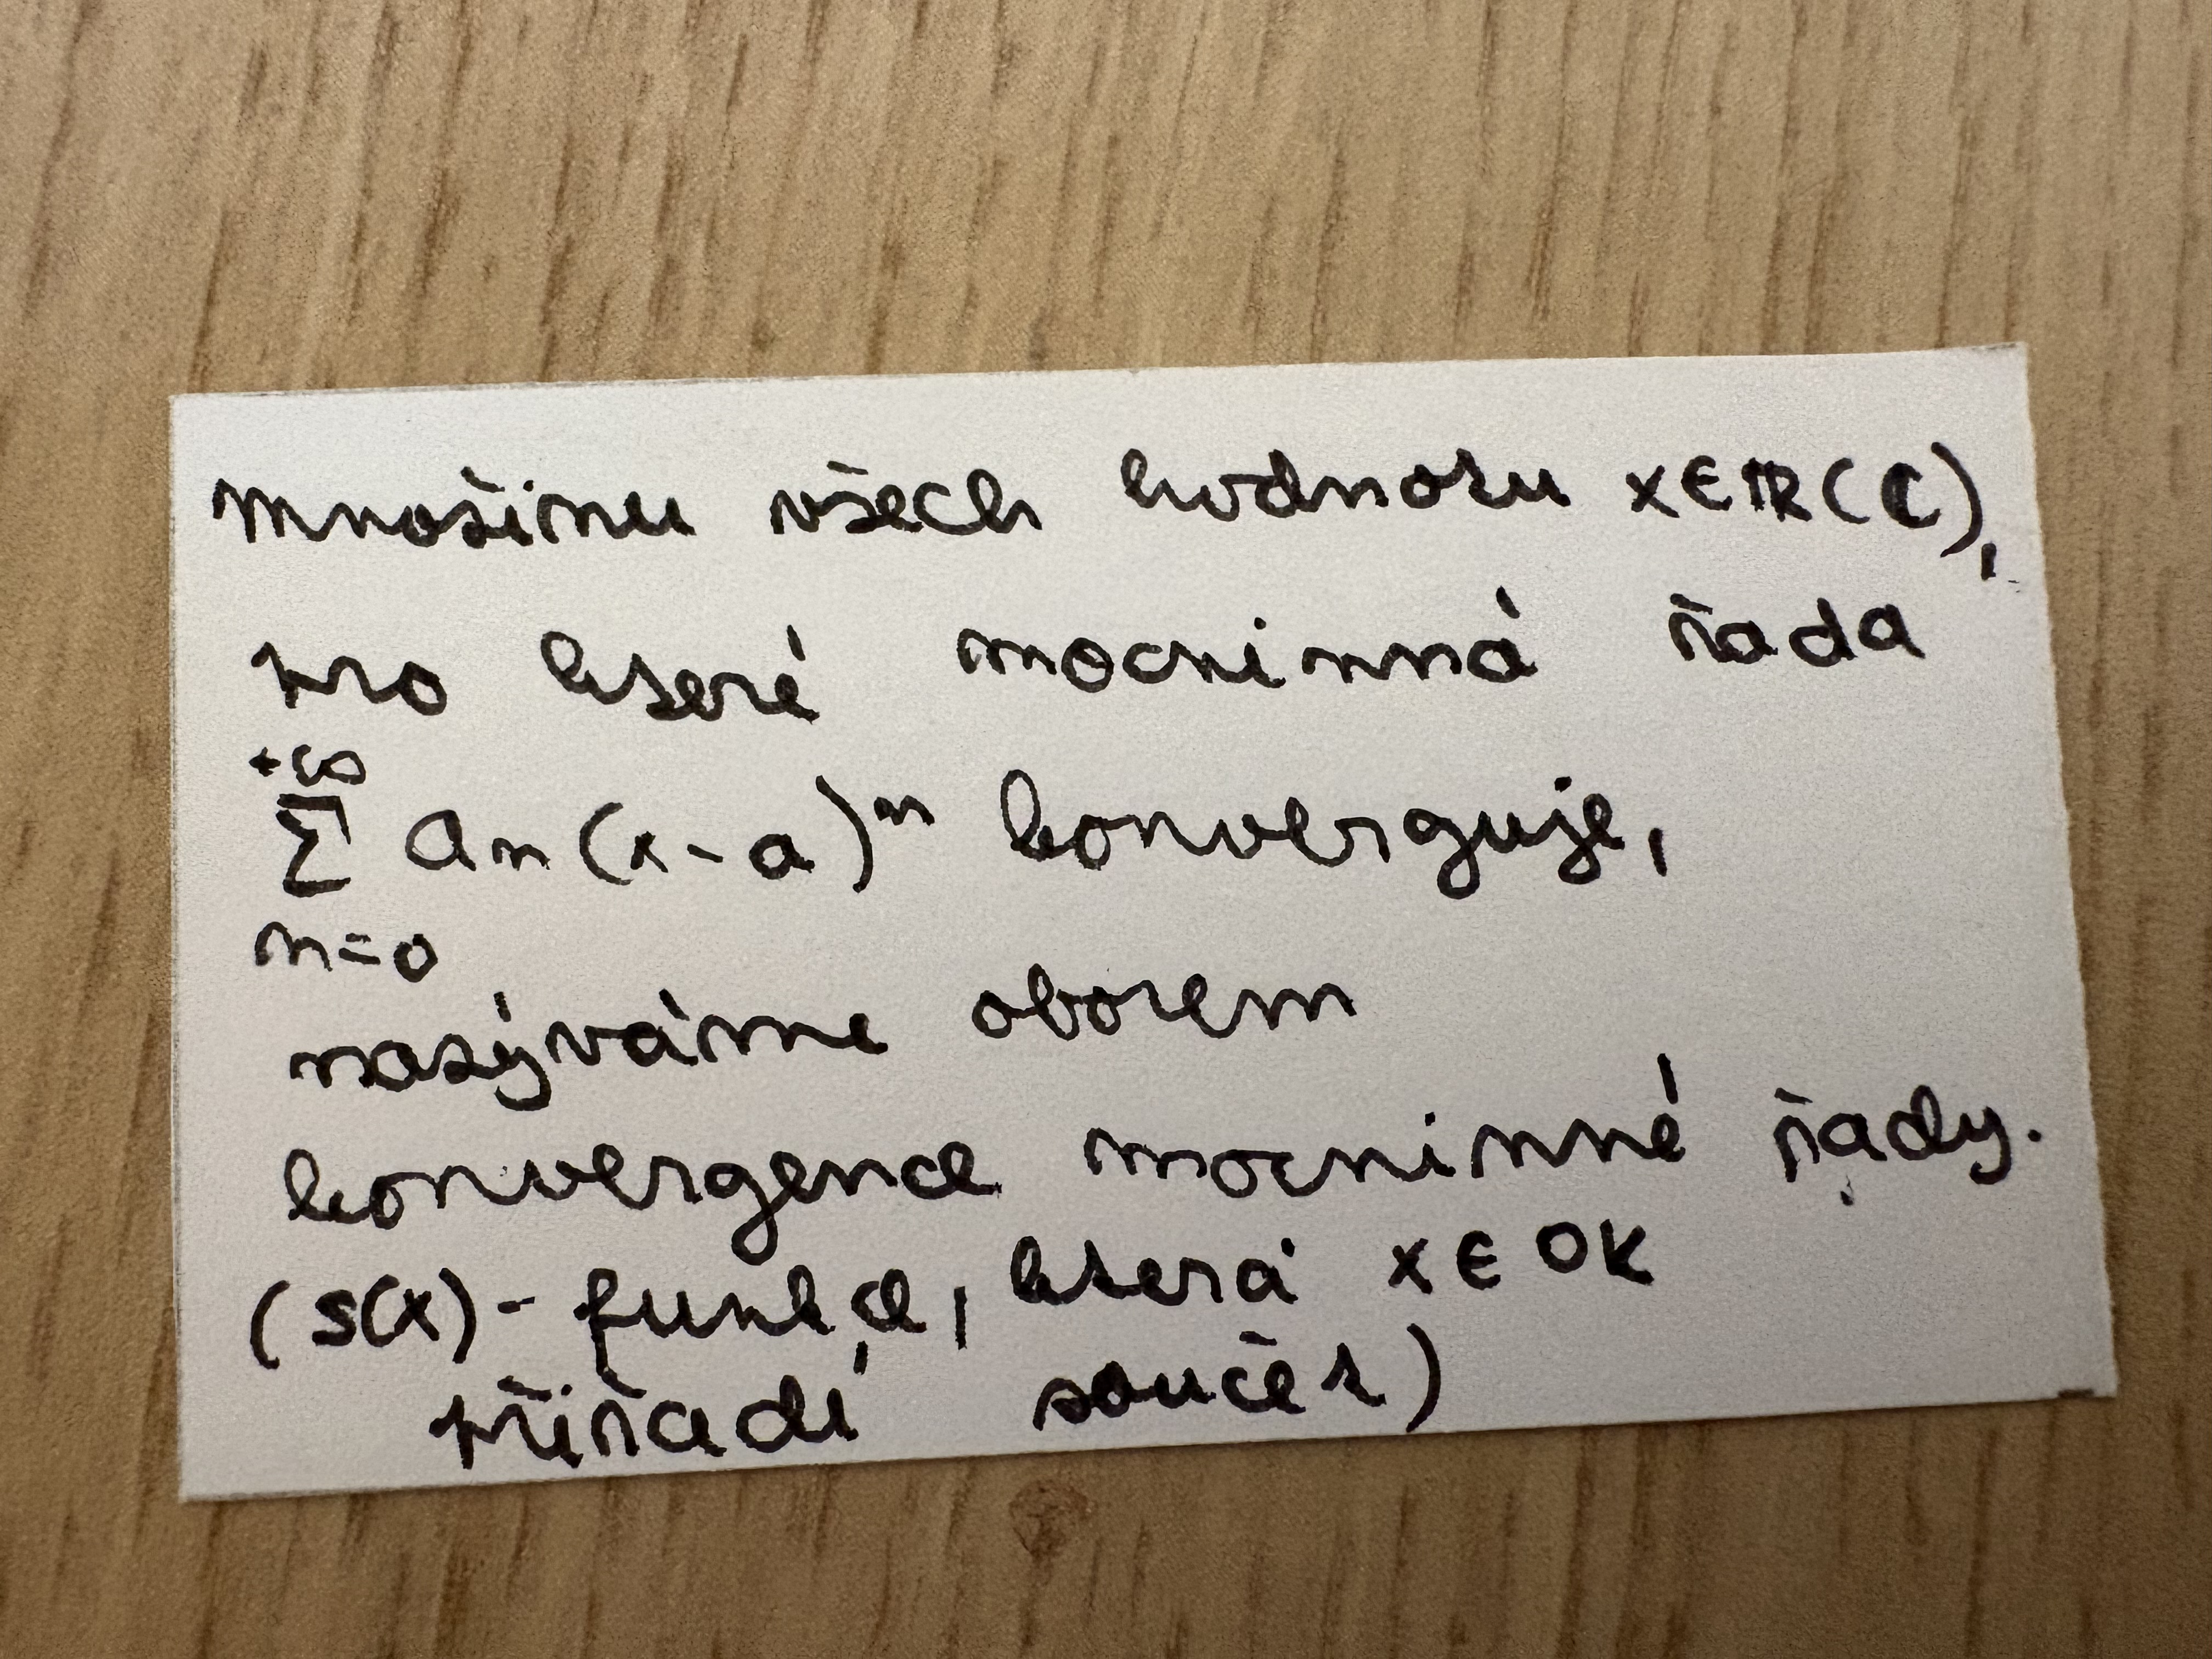 množinu všech hodnotu x∈ℝ(ℂ),
pro které mocninná řada
+∞
∑ an(x-a)ⁿ konverguje,
n=0
nazýváme oborem
konvergence mocninné řady.
(s(x) - funkce, která x∈OK
přiřadí součet)